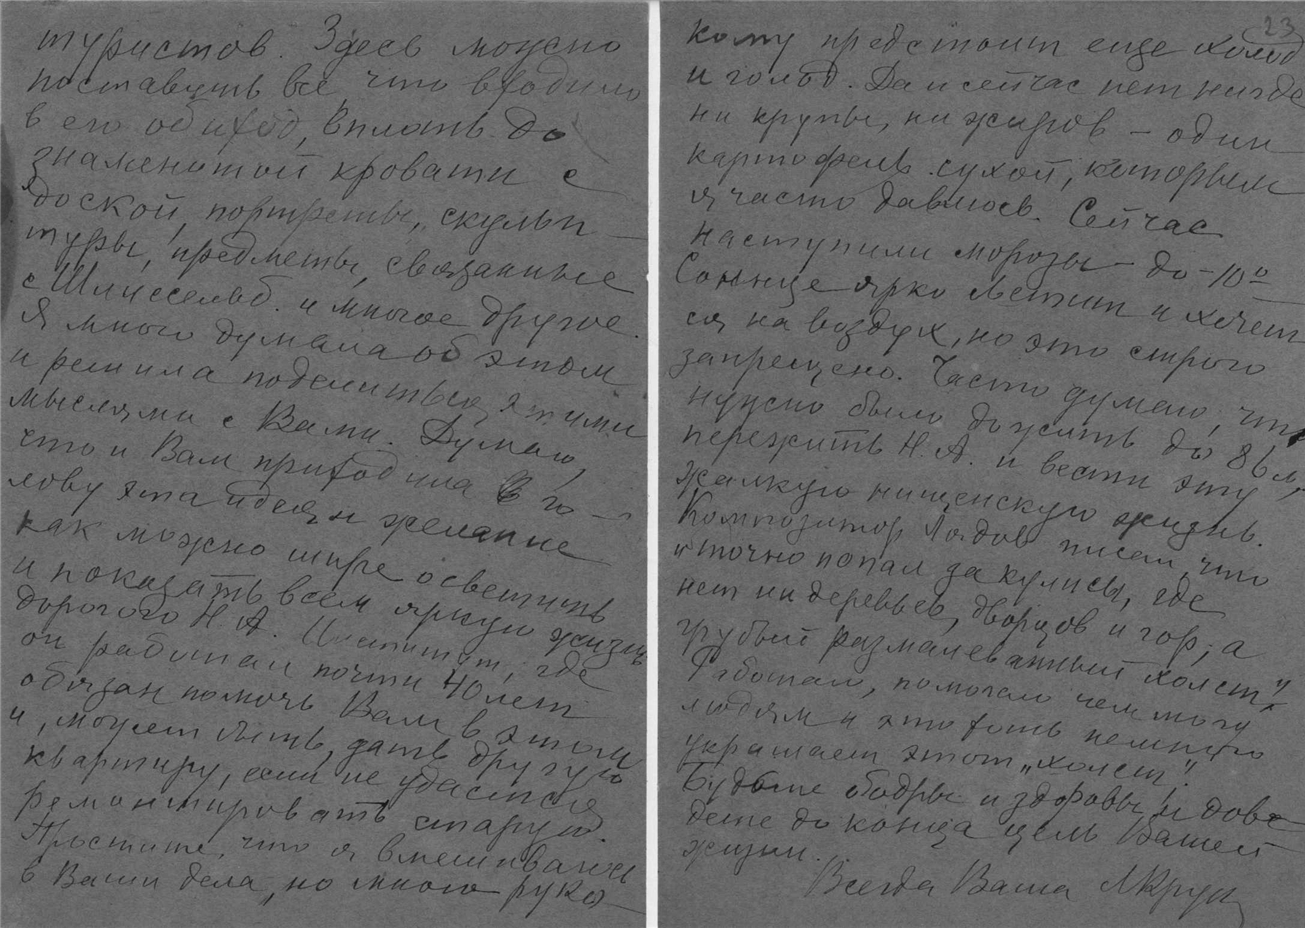 туристов. Здесь можно
поставить всё что входило
в его обиход, вплоть до
знаменитой кровати с
доской, портреты, скульп-
туры, предметы, связанные
с Шлиссельб. и многое другое.
Я много думала об этом
и решила поделиться этими
мыслями с Вами. Думаю,
что и Вам приходила в го-
лову эта идея и желание
как можно шире осветить
и показать всем яркую жизнь
дорогого Н.А. Институт, где
он работал почти 40 лет
обязан помочь Вам в этом
и, может быть, дать другую
квартиру, если не удастся
ремонтировать старую.
Простите, что я вмешиваюсь
в Ваши дела, но много
23
кому предстоит еще холод
и голод. Да и сейчас нет нигде
ни крупы, ни жиров – один
картофель сухой, которым
я часто давлюсь. Сейчас
наступили морозы – до -10°
Солнце ярко светит и хочет
ся на воздух, но это строго
запрещено. Часто думаю, что
нужно было дожить до 86 л,
пережить Н.А. и вести эту
жалкую нищенскую жизнь.
Композитор Лядов писал, что
"точно попал за кулисы, где
нет ни деревьев, дворцов и гор, а
грубый размалеванный холст"
Работаю, помогаю чем могу
людям и это хоть немного
украшает этот "холст".
Будьте бодры и здоровы и дове
дите до конца цель Вашей
жизни.
Всегда Ваша